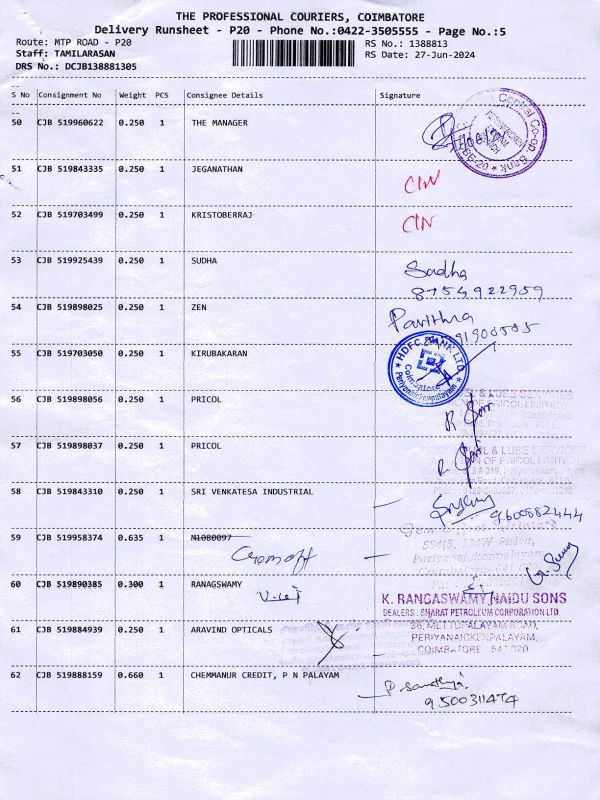 THE PROFESSIONAL COURIERS, COIMBATORE
Delivery Runsheet - P20 - Phone No.:0422-3505555 - Page No.:5
Route: MTP ROAD - P20 RS No.: 1388813
Staff: TAMILARASAN RS Date: 27-Jun-2024
DRS No.: DCJB138881305
S No Consignment No Weight PCS Consignee Details Signature
50 CJB 519960622 0.250 1 THE MANAGER
Central Co-op. Bank
51 CJB 519843335 0.250 1 JEGANATHAN
CIN
52 CJB 519703499 0.250 1 KRISTOBERRAJ
CIN
53 CJB 519925439 0.250 1 SUDHA
Sudha
8754922959
54 CJB 519898025 0.250 1 ZEN
Pavithra
55 CJB 519703050 0.250 1 KIRUBAKARAN
HDFC BANK LTD
Coimbatore
56 CJB 519898056 0.250 1 PRICOL
57 CJB 519898037 0.250 1 PRICOL
58 CJB 519843310 0.250 1 SRI VENKATESA INDUSTRIAL
9600582444
59 CJB 519958374 0.635 1 N1080097
60 CJB 519890385 0.300 1 RANAGSWAMY
K. RANGASWAMY NAIDU SONS
DEALERS: BHARAT PETROLEUM CORPORATION LTD
36, METTUPALAYAM ROAD,
PERIYANAICKENPALAYAM,
COIMBATORE 641 020
61 CJB 519884939 0.250 1 ARAVIND OPTICALS
62 CJB 519888159 0.660 1 CHEMMANUR CREDIT, P N PALAYAM
9500311474